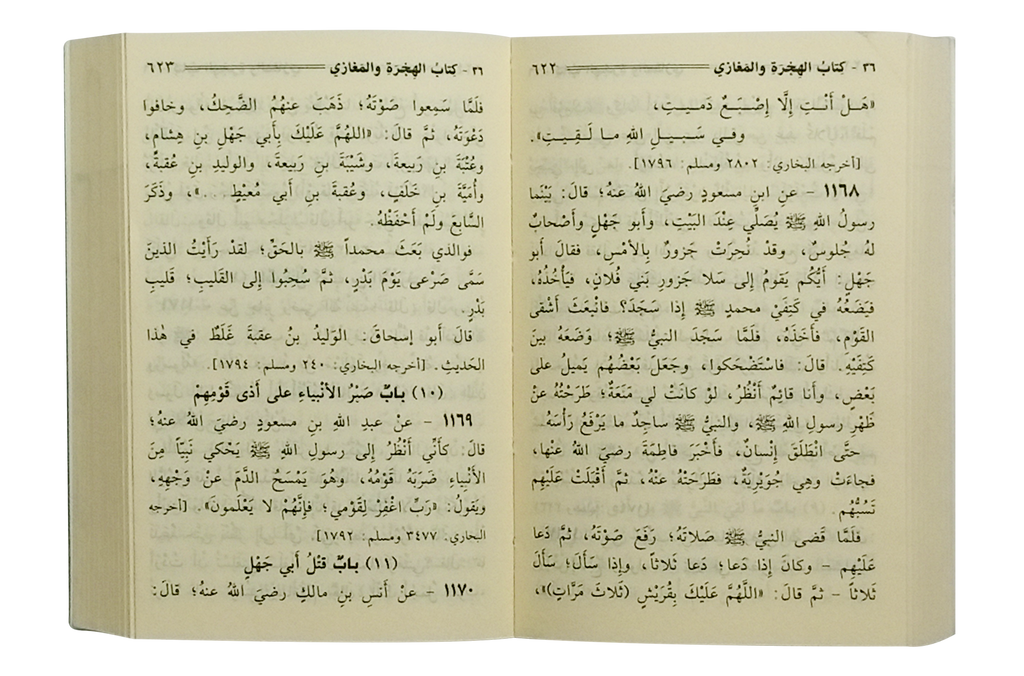 ٣٦ - كِتابُ الهِجْرَةِ والمَغازي ٦٢٢
«هَـلْ أَنْـتِ إِلَّا إِصْـبَـعٌ دَمِـيـتِ،
وفـي سَـبـيـلِ اللهِ مـا لَـقِـيـتِ».
[أخرجه البخاري: ٢٨٠٢ ومسلم: ١٧٩٦].
١١٦٨ - عنِ ابنِ مسعودٍ رضيَ اللهُ عنهُ؛ قالَ: بَيْنَما
رسولُ اللهِ ﷺ يُصَلِّي عِنْدَ البَيْتِ، وأَبو جَهْلٍ وأَصْحابٌ
لهُ جُلوسٌ، وقدْ نُحِرَتْ جَزورٌ بِالأمْسِ، فقالَ أبو
جَهْلٍ: أَيُّكُم يَقومُ إِلى سَلا جَزورِ بَني فُلانٍ، فيَأْخُذُهُ،
فيَضَعُهُ في كَتِفَيْ محمدٍ ﷺ إذا سَجَدَ؟ فانْبَعَثَ أَشْقى
القَوْمِ، فأَخَذَهُ، فلَمَّا سَجَدَ النبيُّ ﷺ؛ وَضَعَهُ بينَ
كَتِفَيْهِ. قالَ: فاسْتَضْحَكوا، وجَعَلَ بَعْضُهُم يَميلُ على
بَعْضٍ، وأَنا قائِمٌ أَنْظُرُ، لَوْ كانَتْ لي مَنَعَةٌ؛ طَرَحْتُهُ عنْ
ظَهْرِ رسولِ اللهِ ﷺ، والنبيُّ ﷺ ساجِدٌ ما يَرْفَعُ رَأْسَهُ.
حتَّى انْطَلَقَ إِنْسانٌ، فأَخْبَرَ فاطِمَةَ رضيَ اللهُ عنها،
فجاءَتْ وهِيَ جُوَيْرِيَةٌ، فطَرَحَتْهُ عنْهُ، ثمَّ أَقْبَلَتْ عَلَيْهِم
تَسُبُّهُم.
فلَمَّا قَضى النبيُّ ﷺ صَلاتَهُ؛ رَفَعَ صَوْتَهُ، ثمَّ دَعا
عَلَيْهِم - وكانَ إِذا دَعا؛ دَعا ثَلاثاً، وإذا سَأَلَ؛ سَأَلَ
ثَلاثاً - ثمَّ قالَ: «اللَّهُمَّ عَلَيْكَ بِقُرَيْشٍ (ثَلاثَ مَرَّاتٍ)»،
٣٦ - كِتابُ الهِجْرَةِ والمَغازي ٦٢٣
فلَمَّا سَمِعوا صَوْتَهُ؛ ذَهَبَ عنهُمُ الضَّحِكُ، وخافوا
دَعْوَتَهُ، ثمَّ قالَ: «اللهُمَّ عَلَيْكَ بِأَبي جَهْلِ بنِ هِشامٍ،
وعُتْبَةَ بنِ رَبيعَةَ، وشَيْبَةَ بنِ رَبيعَةَ، والوليدِ بنِ عُقبةَ،
وأُمَيَّةَ بنِ خَلَفٍ، وعُقبةَ بنِ أَبي مُعيْطٍ...»، وذَكَرَ
السَّابعَ ولَمْ أَحْفَظْهُ.
فوالذي بَعَثَ محمداً ﷺ بالحَقِّ؛ لقدْ رَأَيْتُ الذينَ
سَمَّى صَرْعى يَوْمَ بَدْرٍ، ثمَّ سُحِبُوا إلى القَليبِ؛ قَليبِ
بَدْرٍ.
قالَ أَبو إسحاقَ: الوَليدُ بنُ عقبةَ غَلَطٌ في هٰذا
الحَديثِ. [أخرجه البخاري: ٢٤٠ ومسلم: ١٧٩٤].
(١٠) بابٌ صَبْرُ الأَنْبياءِ على أَذى قَوْمِهِمْ
١١٦٩ - عنْ عبدِ اللهِ بنِ مسعودٍ رضيَ اللهُ عنهُ؛
قالَ: كَأَنِّي أَنْظُرُ إِلى رسولِ اللهِ ﷺ يَحْكي نَبِيّاً مِنَ
الأَنْبِياءِ ضَرَبَهُ قَوْمُهُ، وهُوَ يَمْسَحُ الدَّمَ عنْ وَجْهِهِ،
ويَقولُ: «رَبِّ اغْفِرْ لِقَوْمي؛ فإِنَّهُمْ لا يَعْلَمونَ». [أخرجه
البخاري: ٣٤٧٧ ومسلم: ١٧٩٢].
(١١) بابُ قَتْلُ أَبي جَهْلٍ
١١٧٠ - عنْ أَنَسِ بنِ مالكٍ رضيَ اللهُ عنهُ؛ قالَ: